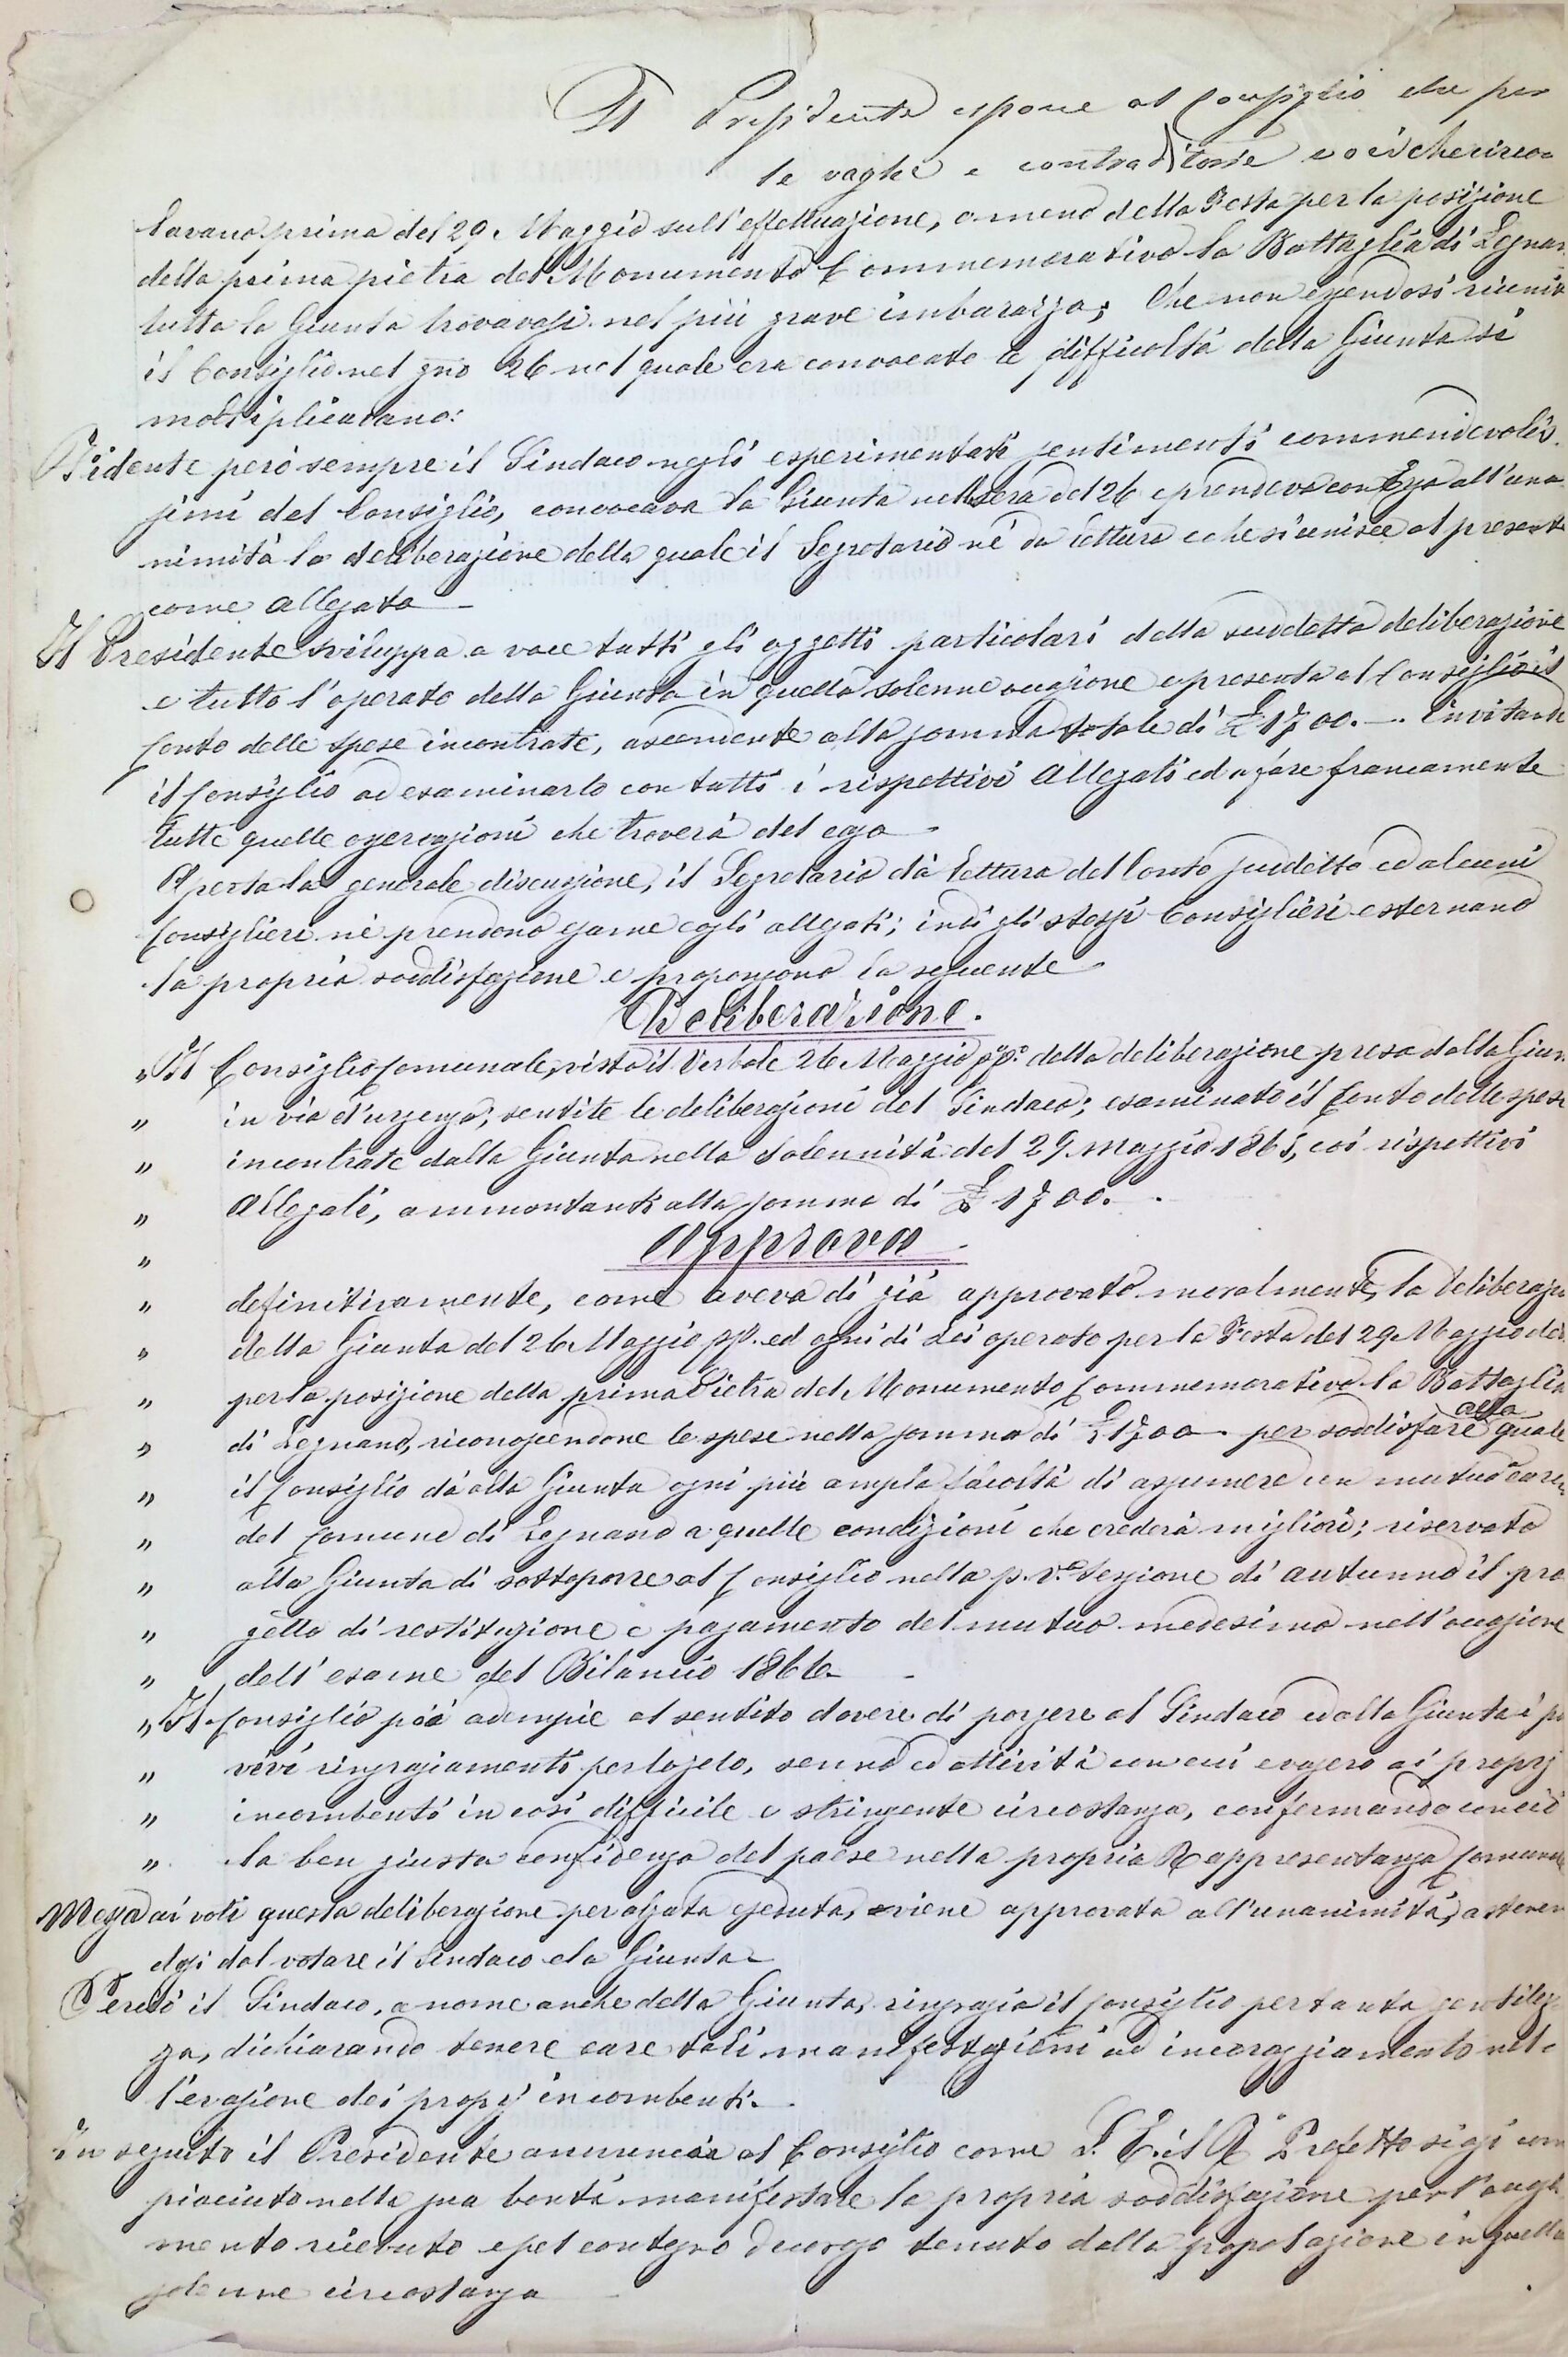 Il Presidente espone al Consiglio che per
le vaghe e contraditorie voci che circo=
lavano prima del 29 Maggio sull'effettuazione, o meno della Festa per la posizione
della prima pietra del Monumento Commemorativo la Battaglia di Legnan
tutta la Giunta trovavasi nel più grave imbarazzo; Che non essendosi riunito
il Consiglio nel gno 26 nel quale era convocato le difficoltà della Giunta si
moltiplicavano:
Fidente però sempre il Sindaco negli esperimentati sentimenti commendevolis
simi del Consiglio, convocava la Giunta nella sera del 26 e prendeva con Essa all'una
nimità la deliberazione della quale il Segretario nè da lettura e che si unisce al presente
come allegato
Il Presidente sviluppa a voce tutti gli oggetti particolari della suddetta deliberazione
e tutto l'operato della Giunta in quella solenne occasione e presenta al Consiglio il
Conto delle spese incontrate, ascendente alla somma totale di £ 1700. — invitando
il Consiglio ad esaminarlo con tutti i rispettivi Allegati ed a fare francamente
tutte quelle osservazioni che troverà del caso
Aperta la generale discussione, il Segretario dà lettura del Conto suddetto ed alcuni
Consiglieri nè prendono esame cogli allegati; indi gli stessi Consiglieri esternano
la propria soddisfazione e propongono la seguente
Deliberazione.
„ Il Consiglio Comunale, visto il Verbale 26 Maggio p.p.° della deliberazione presa dalla Giun
„ in via d'urgenza; sentite le deliberazioni del Sindaco; esaminato il Conto delle spese
„ incontrate dalla Giunta nella Solennità del 29 Maggio 1865, coi rispettivi
„ Allegati, ammontanti alla somma di £ 1700. —
„ Approva
„ definitivamente, come aveva di già approvato moralmente, la Deliberazio
„ della Giunta del 26 Maggio pp. ed ogni di Lei operato per la Festa del 29 Maggio
„ per la posizione della prima Pietra del Monumento Commemorativo la Battaglia
„ di Legnano, riconoscendone le spese nella somma di £ 1700 — per soddisfare alla quale
„ il Consiglio dà alla Giunta ogni più ampla facoltà di assumere un mutuo a cari
„ del Comune di Legnano a quelle condizioni che crederà migliori; riservato
„ alla Giunta di sottoporre al Consiglio nella p.v.a Sessione di autunno il pro
„ getto di restituzione e pagamento del mutuo medesimo nell'occasione
„ dell'esame del Bilancio 1866 —
„ Il Consiglio poi adempie al sentito dovere di porgere al Sindaco ed alla Giunta i più
„ vivi ringraziamenti per lo zelo, senno ed attività con cui evasero ai proprj
„ incombenti in così difficile e stringente circostanza, confermando con ciò
„ la ben giusta confidenza del paese nella propria Rappresentanza Comunale
Messa ai voti questa deliberazione per alzata e seduta, viene approvata all'unanimità, astenen
dosi dal votare il Sindaco e la Giunta —
Perciò il Sindaco, a nome anche della Giunta, ringrazia il Consiglio per tanta gentilez
za, dichiarando tenere care tali manifestazioni ad incoraggiamento nel=
l'evasione dei proprj incombenti. —
In seguito il Presidente annuncia al Consiglio come S. E. il R° Prefetto siasi com
piaciuto nella sua bontà manifestare la propria soddisfazione per l'
mento ricevuto e pel contegno tenuto dalla popolazione in quella
solenne circostanza